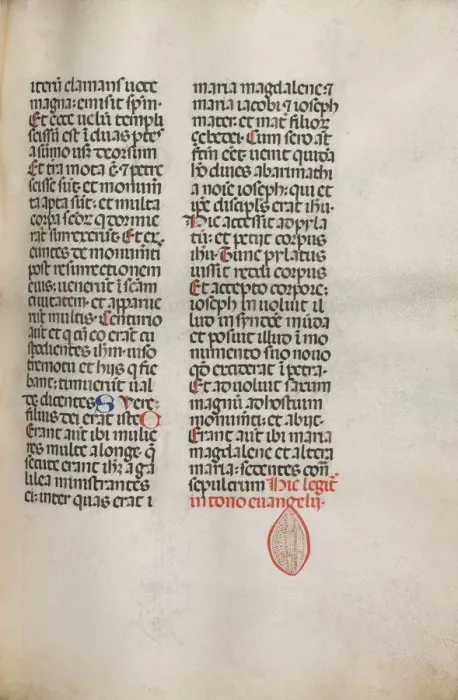 iterū clamans uoce
magna: emisit spm̄.
Et ecce uelū templi
scissū est ī duas ptes
a sūmo usꝫ deorsum
Et tra mota ē· ⁊ petre
scisse sūt· et monum̄
ta apta sūt· et multa
corpa scōꝝ q dormie
rāt surrexerūt. Et ex
euntes de monum̄ti
post resurrectionem
eius· uenerūt ī scām
ciuitatem· et apparue
rūt multis. Centurio
aūt et q cū eo erāt cu
stodientes ihm̄· uiso
tremotu et hijs q fie
bant: timuerūt ual
de dicentes S Vere:
filius dei erat iste O
Erant aūt ibi mulie
res multe a longe· q̄
secute erant ihꝫ a ga
lilea ministrantes
ei: inter quas erat ī
maria magdalene: ⁊
maria iacobi ⁊ ioseph
mater: et mat filioꝝ
çebedei. Cum sero aūt
fctm̄ eēt· uenit quidā
hō diues ab arimathi
a noīe ioseph: qui et
ipe discipls erat ihu·
Hic accessit ad pyla
tū: et petijt corpus
ihu· Tunc pylatus
iussit reddi corpus
Et accepto corpore:
ioseph īuoluit il
lud in syndōe mūda
et posuit illud ī mo
numento suo nouo
qd̄ exciderat ī petra·
Et aduoluit saxum
magnū ad hostium
monum̄ti: et abijt·
Erant aūt ibi maria
magdalene et altera
maria: sedentes cont̄
sepulcrum Hic legit̄
in tono euangelij·